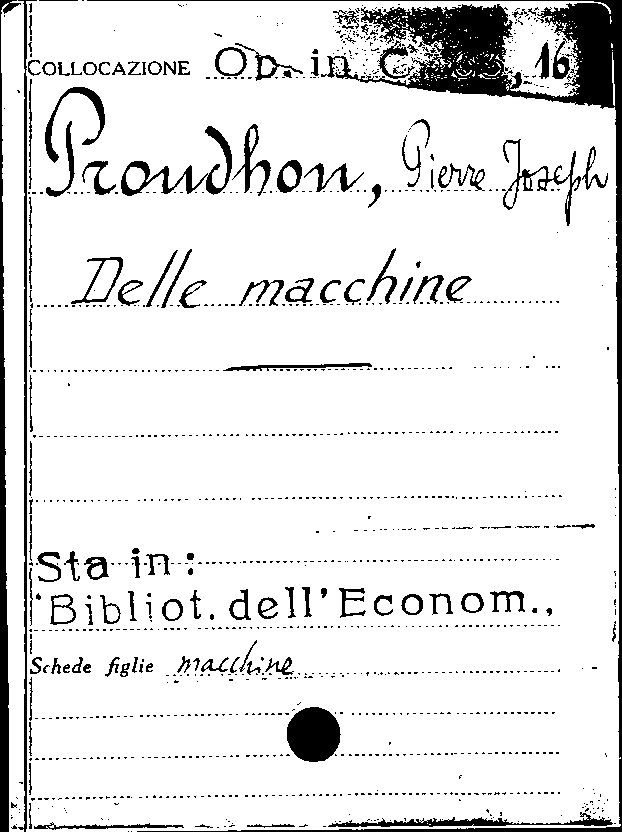 COLLOCAZIONE Op. in C , 16
Proudhon, Pierre Joseph
Delle macchine
Sta in:
Bibliot. dell'Econom.,
Schede figlie macchine